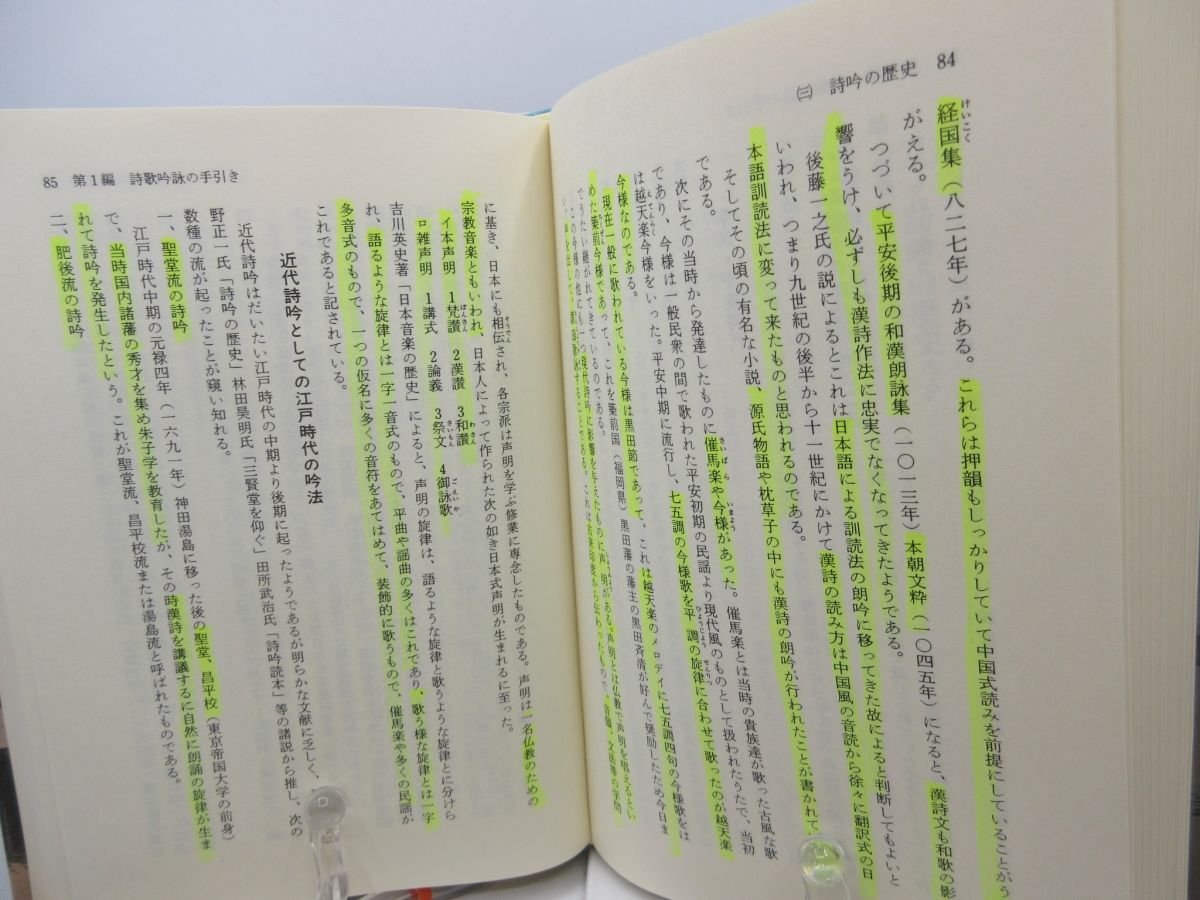 84
㈢ 詩吟の歴史
経国集（八二七年）がある。これらは押韻もしっかりしていて中国式読みを前提にしていることがう
けいこく
がえる。
つづいて平安後期の和漢朗詠集（一〇一三年）本朝文粋（一〇四五年）になると、漢詩文も和歌の影
響をうけ、必ずしも漢詩作法に忠実でなくなってきたようである。
後藤一之氏の説によるとこれは日本語による訓読法の朗吟に移ってきた故によると判断してもよいと
いわれ、つまり九世紀の後半から十一世紀にかけて漢詩の読み方は中国風の音読から徐々に翻訳式の日
本語訓読法に変って来たものと思われるのである。
そしてその頃の有名な小説、源氏物語や枕草子の中にも漢詩の朗吟が行われたことが書かれて
である。
次にその当時から発達したものに催馬楽や今様があった。催馬楽とは当時の貴族達が歌った古風な歌
さいばら
いまよう
であり、今様は一般民衆の間で歌われた平安初期の民謡より現代風のものとして扱われたうたで、当初
は越天楽今様をいった。平安中期に流行し、七五調の今様歌を平調の旋律に合わせて歌ったのが越天楽
えてんらく
ひょうじょう
せんりつ
今様なのである。
現在一般に歌われている今様は黒田節であって、これは越天楽のメロディに七五調四句の今様歌をは
めた筑前今様であって、これを筑前国（福岡県）黒田藩の藩主の黒田斉清が好んで奨励したため今日ま
でうたい継がれてきているのである。
この今様の他にも一つ現代詩吟に影響を与えたものに声明がある。声明とは仏教で声明を唱えるとい
85 第1編 詩歌吟詠の手引き
に基き、日本にも相伝され、各宗派は声明を学ぶ修業に専念したものである。声明は一名仏教のための
そうでん
宗教音楽ともいわれ、日本人によって作られた次の如き日本式声明が生まれるに至った。
イ本声明 1梵讃 2漢讃 3和讃
ぼんさん
わさん
ロ雑声明 1講式 2論義 3祭文 4御詠歌
さいもん
ごえいか
吉川英史著「日本音楽の歴史」によると、声明の旋律は、語るような旋律と歌うような旋律とに分けら
れ、語るような旋律とは一字一音式のもので、平曲や謡曲の多くはこれであり、歌う様な旋律とは一字
多音式のもので、一つの仮名に多くの音符をあてはめて、装飾的に歌うもので、催馬楽や多くの民謡が
これであると記されている。
近代詩吟としての江戸時代の吟法
近代詩吟はだいたい江戸時代の中期より後期に起ったようであるが明らかな文献に乏しく、
野正一氏「詩吟の歴史」林田昊明氏「三賢堂を仰ぐ」田所武治氏「詩吟読本」等の諸説から推し、次の
数種の流が起ったことが窺い知れる。
一、聖堂流の詩吟
江戸時代中期の元禄四年（一六九一年）神田湯島に移った後の聖堂、昌平校（東京帝国大学の前身）
で、当時国内諸藩の秀才を集め朱子学を教育したが、その時漢詩を講義するに自然に朗誦の旋律が生ま
れて詩吟を発生したという。これが聖堂流、昌平校流または湯島流と呼ばれたものである。
二、肥後流の詩吟